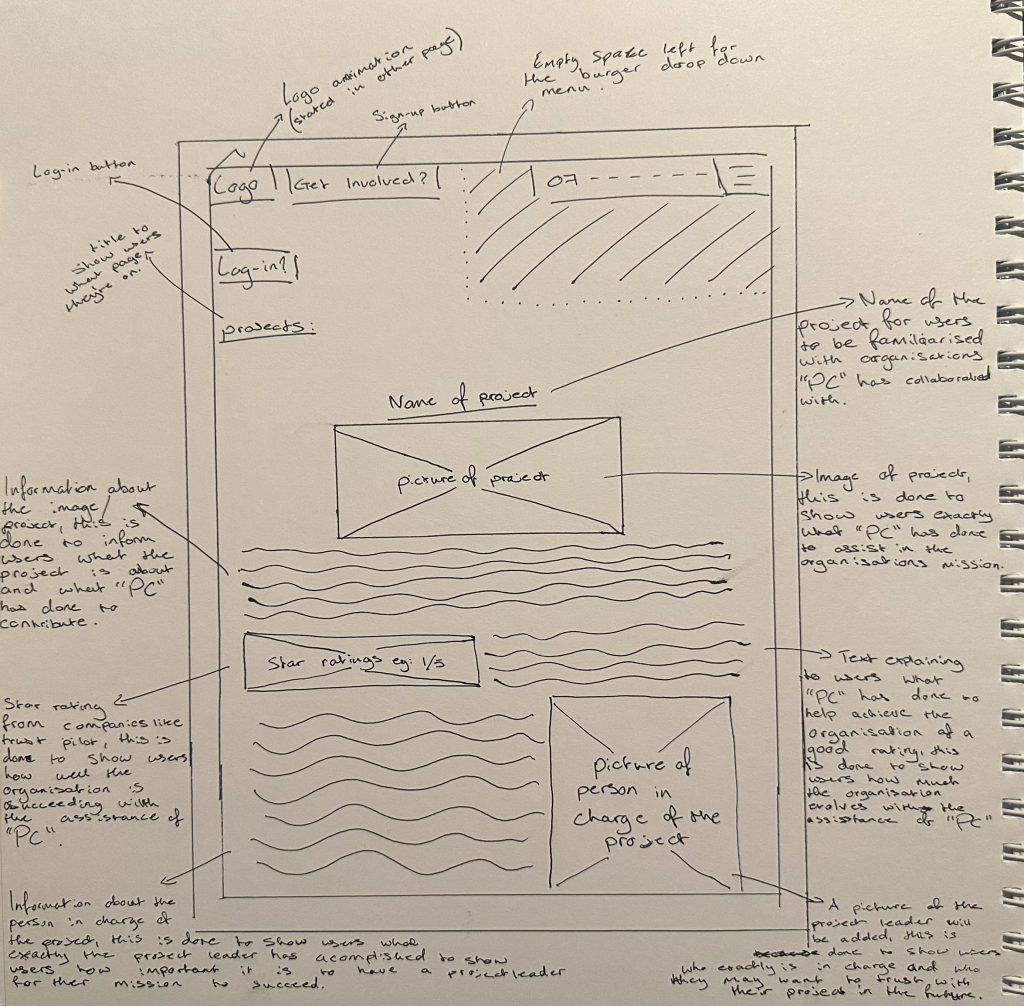 Logo animation
(stated in other page)
Sign-up button
Empty space left for
the burger drop down
menu.
Log-in button
Logo
Get Involved?
07
title to
show users
what page
they're on.
Log-in?
projects:
Name of the
project for users
to be familiarised
with organisations
"PC" has collaborated
with.
Name of project
picture of project
Image of project,
this is done to
show users exactly
what "PC" has done
to assist in the
organisations mission.
Information about
the image
project, this is
done to inform
users what the
project is about
and what "PC"
has done to
contribute.
Star ratings eg: 1/5
Star rating
from companies like
trust pilot, this is
done to show users
how well the
organisation is
succeeding with
the assistance of
"PC".
Text explaining
to users what
"PC" has done to
help achieve the
organisation of a
good rating, this
is done to show
users how much
the organisation
evolves with the
assistance of "PC"
picture of
person in
charge of the
project
Information about the
person in charge of
the project, this is done to show users what
exactly the project leader has acomplished to show
users how important it is to have a project leader
for their mission to succeed.
A picture of the
project leader will
be added, this is
done to show users
who exactly is in charge and who
they may want to trust with
their project in the future.